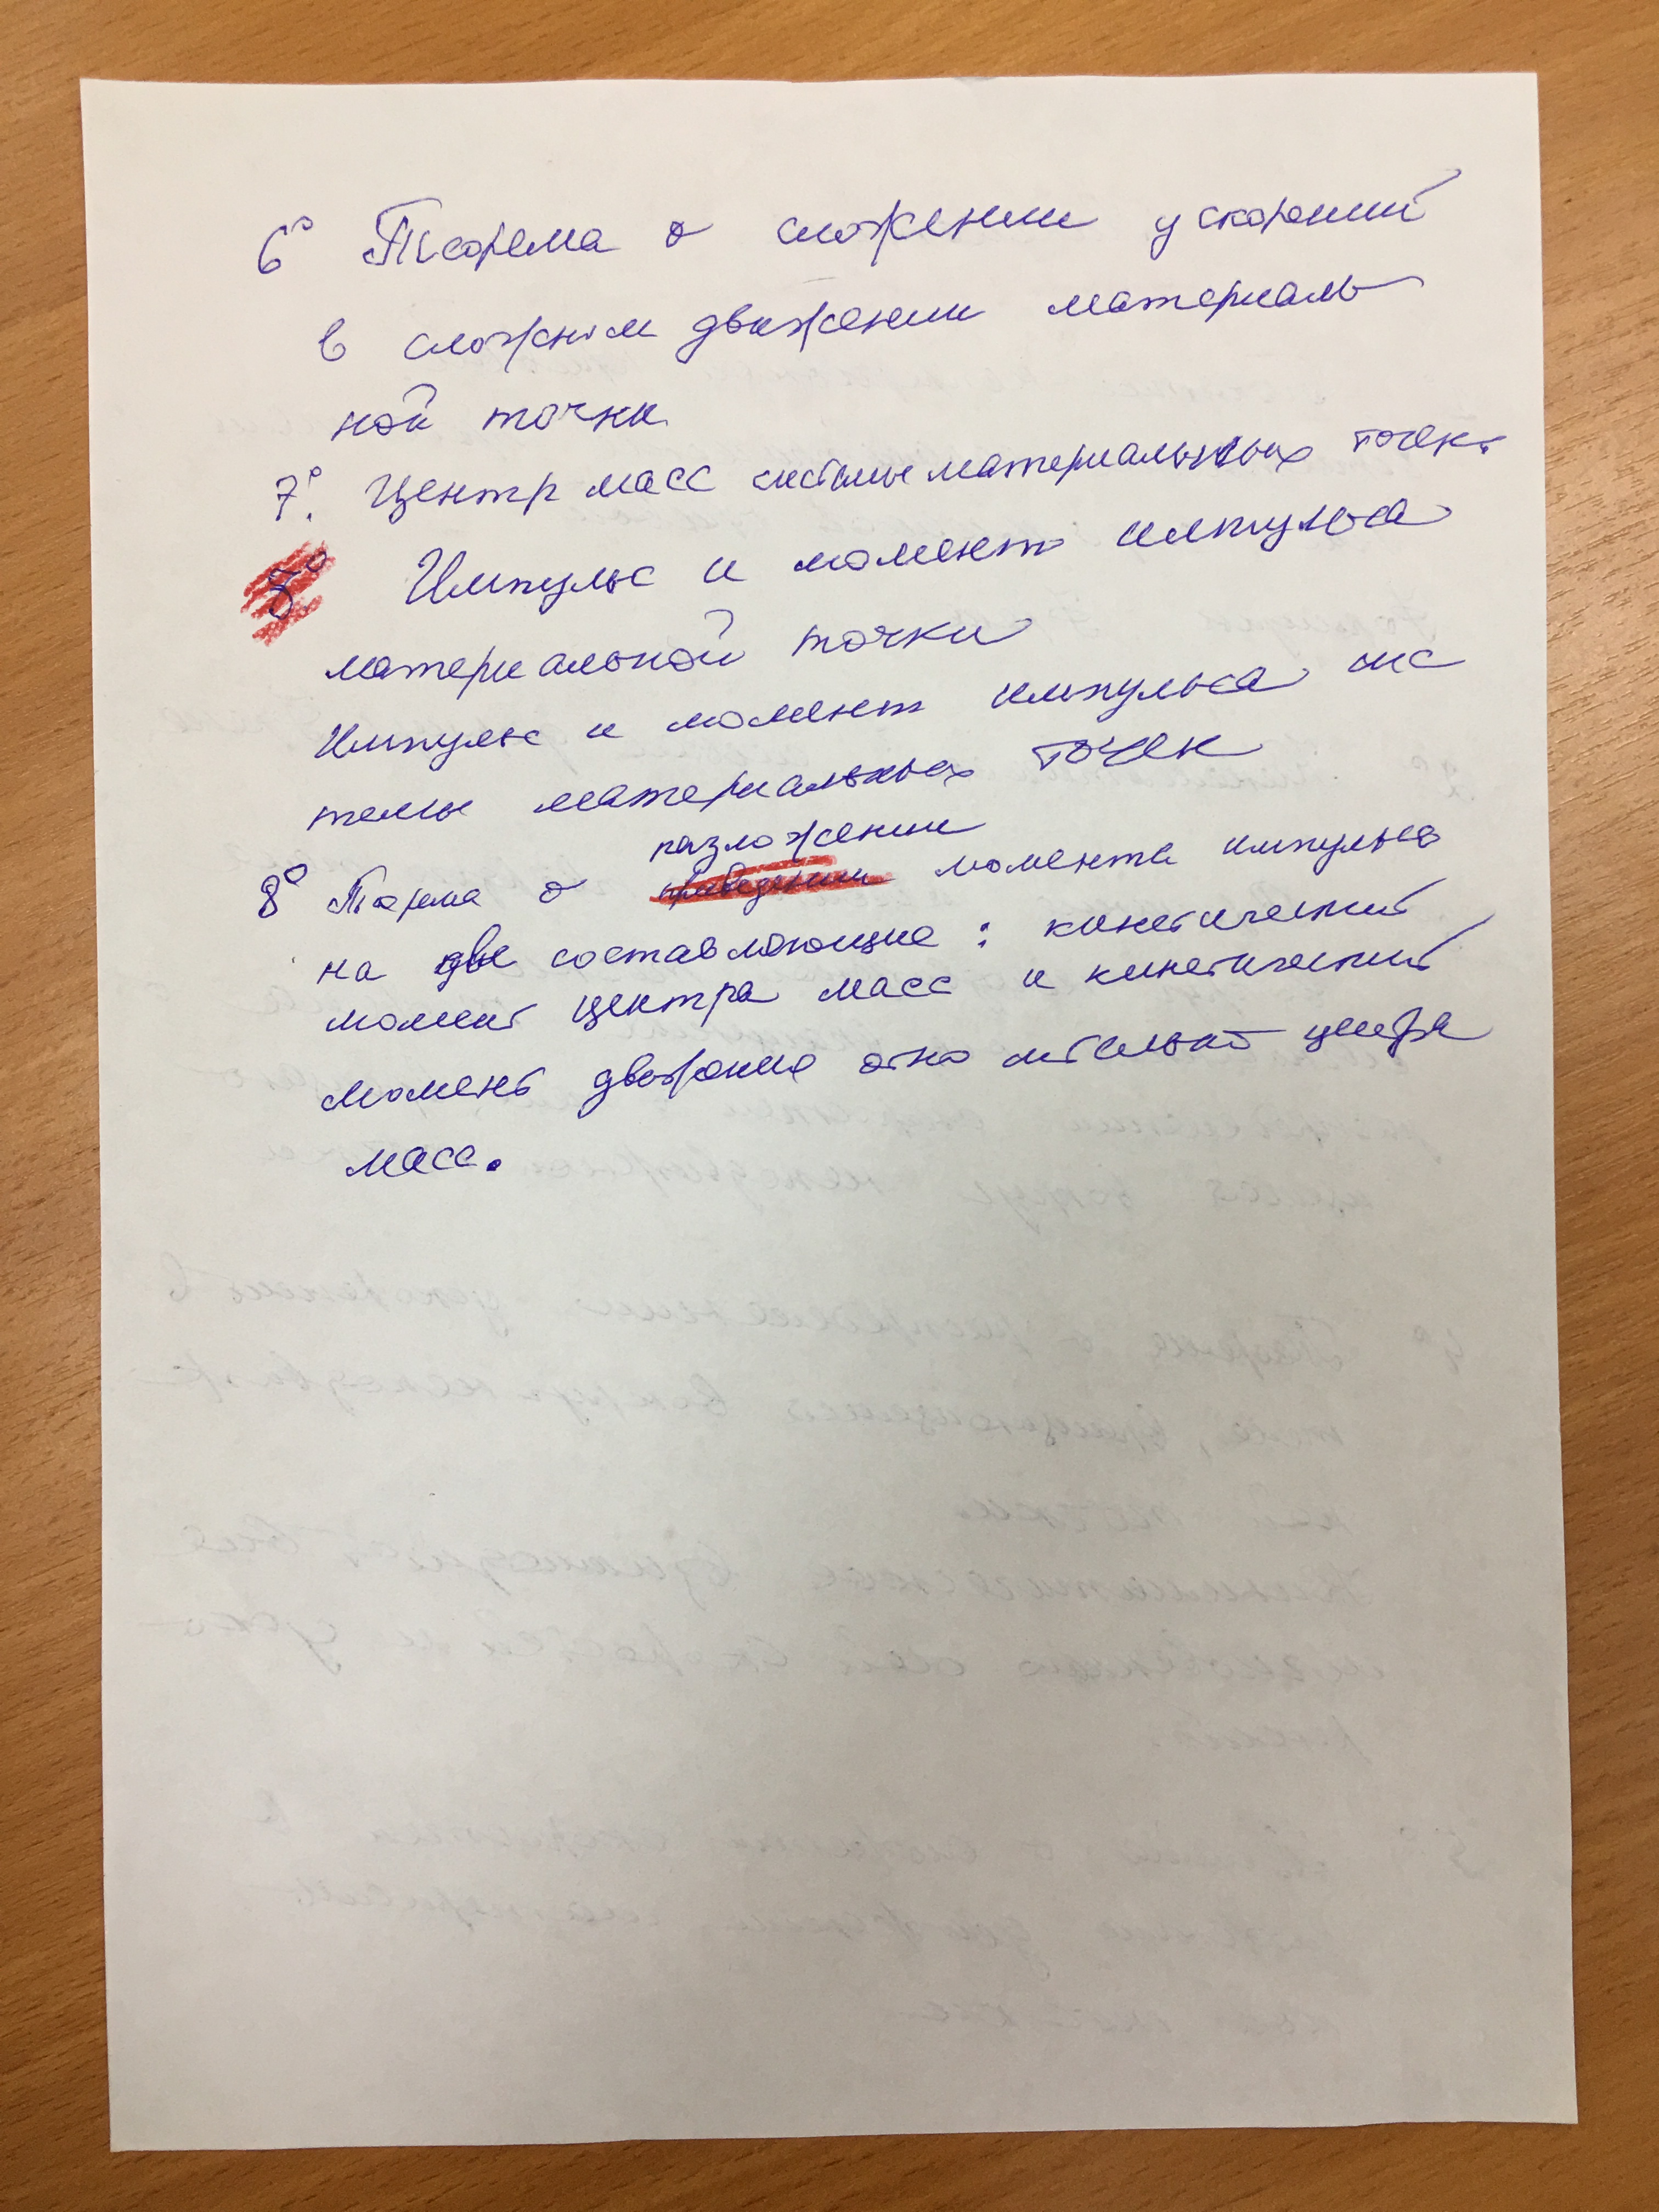 6° Теорема о сложении ускорений
в сложном движении материаль
ной точки
7°. Центр масс системы материальных точек.
8° Импульс и момент импульса
материальной точки
Импульс и момент импульса сис
темы материальных точек
разложении
8° Теорема о приведении момента импульса
на две составляющие: кинетический
момент центра масс и кинетический
момент движения относительно центра
масс.